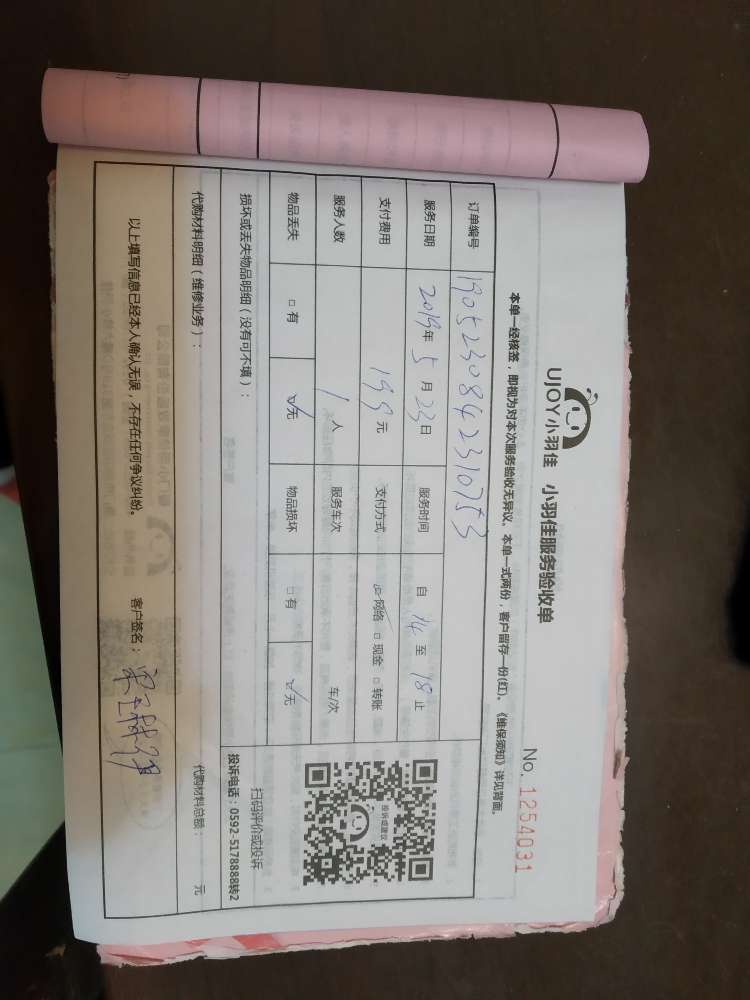 UJOY小羽佳 小羽佳服务验收单
No. 1254031
本单一经核签，即视为对本次服务验收无异议。本单一式两份，客户留存一份(红)。《维保须知》详见背面。
订单编号 1905230842310753
服务日期 2019年5月23日 服务时间 自14至18止
支付费用 199元 支付方式 ☑网络 □现金 □转账
服务人数 1人 服务车次 车/次
物品丢失 □有 ☑无 物品损坏 □有 ☑无
投诉或建议
扫码评价或投诉
投诉电话：0592-5178888转2
损坏或丢失物品明细（没有可不填）：
代购材料明细（维修业务）： 代购材料总额： 元
以上填写信息已经本人确认无误，不存在任何争议纠纷。 客户签名：